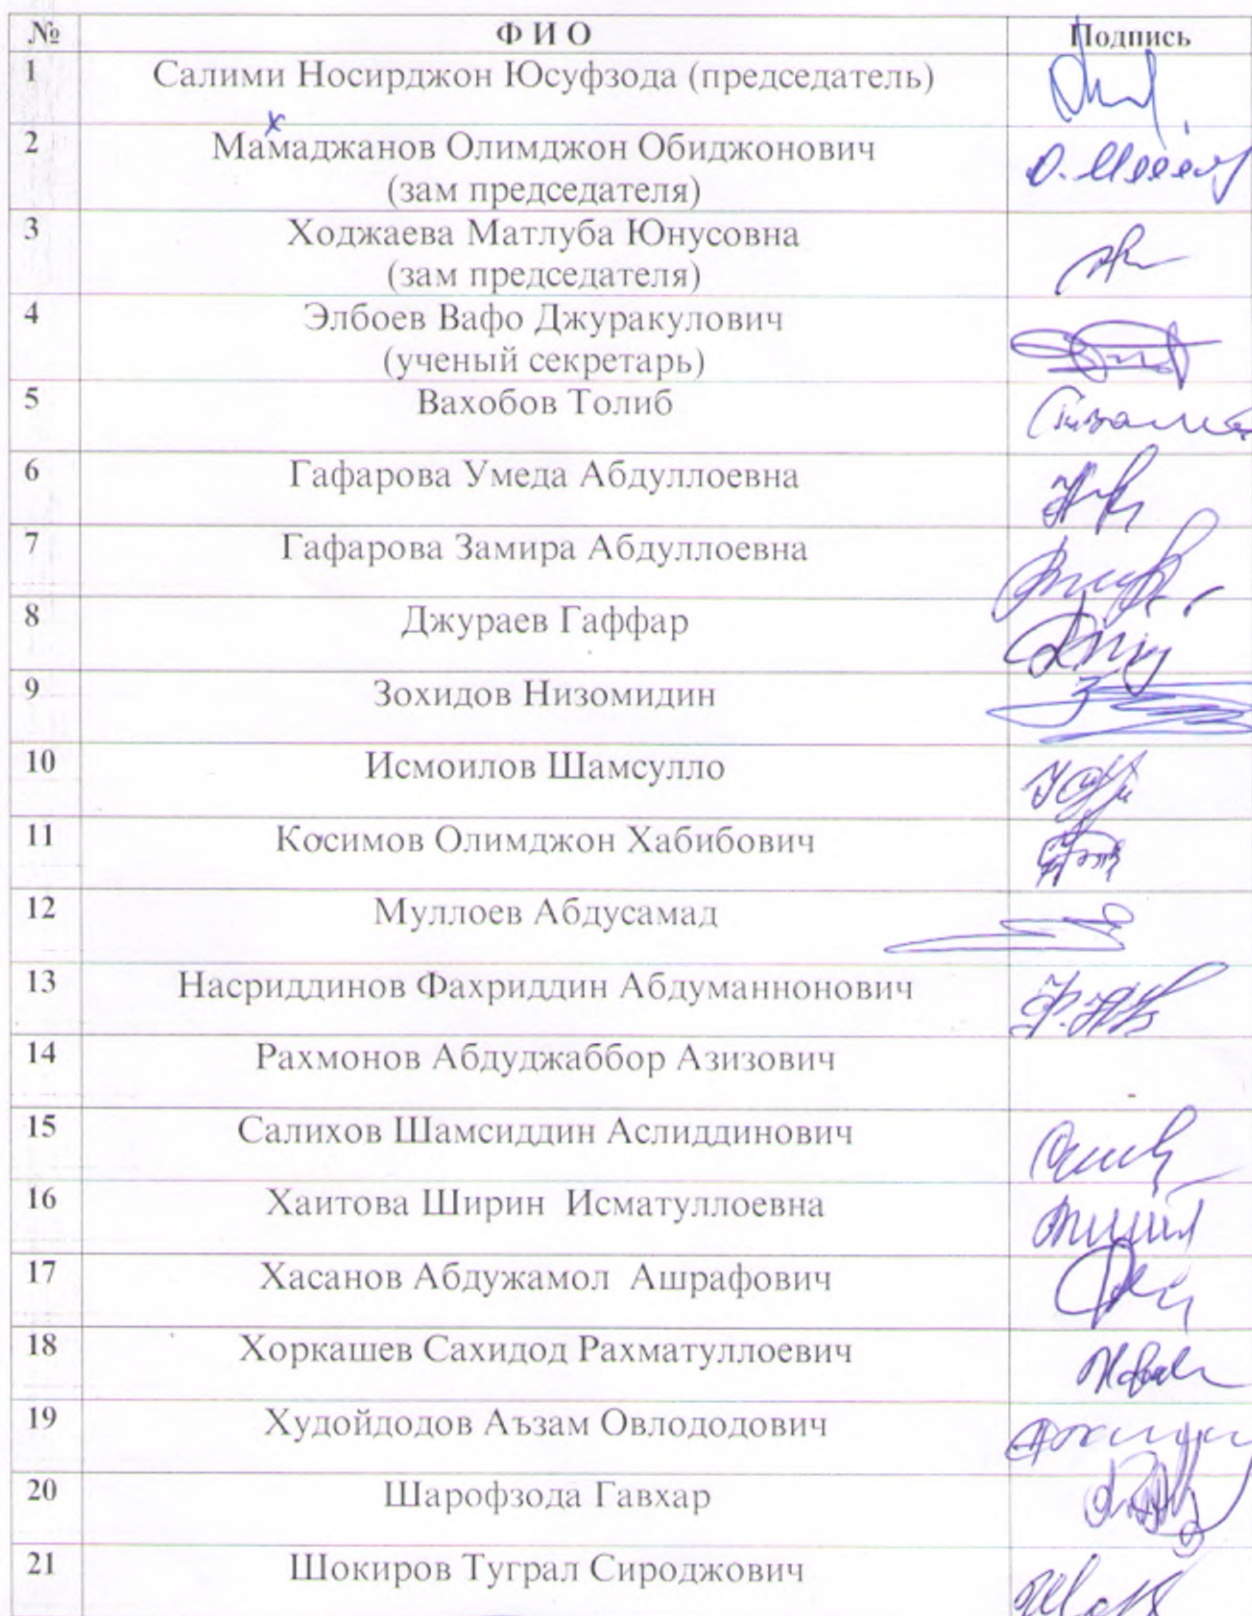 № Ф И О Подпись
1 Салими Носирджон Юсуфзода (председатель)
х
2 Мамаджанов Олимджон Обиджонович
(зам председателя)
3 Ходжаева Матлуба Юнусовна
(зам председателя)
4 Элбоев Вафо Джуракулович
(ученый секретарь)
5 Вахобов Толиб
6 Гафарова Умеда Абдуллоевна
7 Гафарова Замира Абдуллоевна
8 Джураев Гаффар
9 Зохидов Низомидин
10 Исмоилов Шамсулло
11 Косимов Олимджон Хабибович
12 Муллоев Абдусамад
13 Насриддинов Фахриддин Абдуманнонович
14 Рахмонов Абдуджаббор Азизович -
15 Салихов Шамсиддин Аслиддинович
16 Хаитова Ширин Исматуллоевна
17 Хасанов Абдужамол Ашрафович
18 Хоркашев Сахидод Рахматуллоевич
19 Худойдодов Аъзам Овлододович
20 Шарофзода Гавхар
21 Шокиров Туграл Сироджович